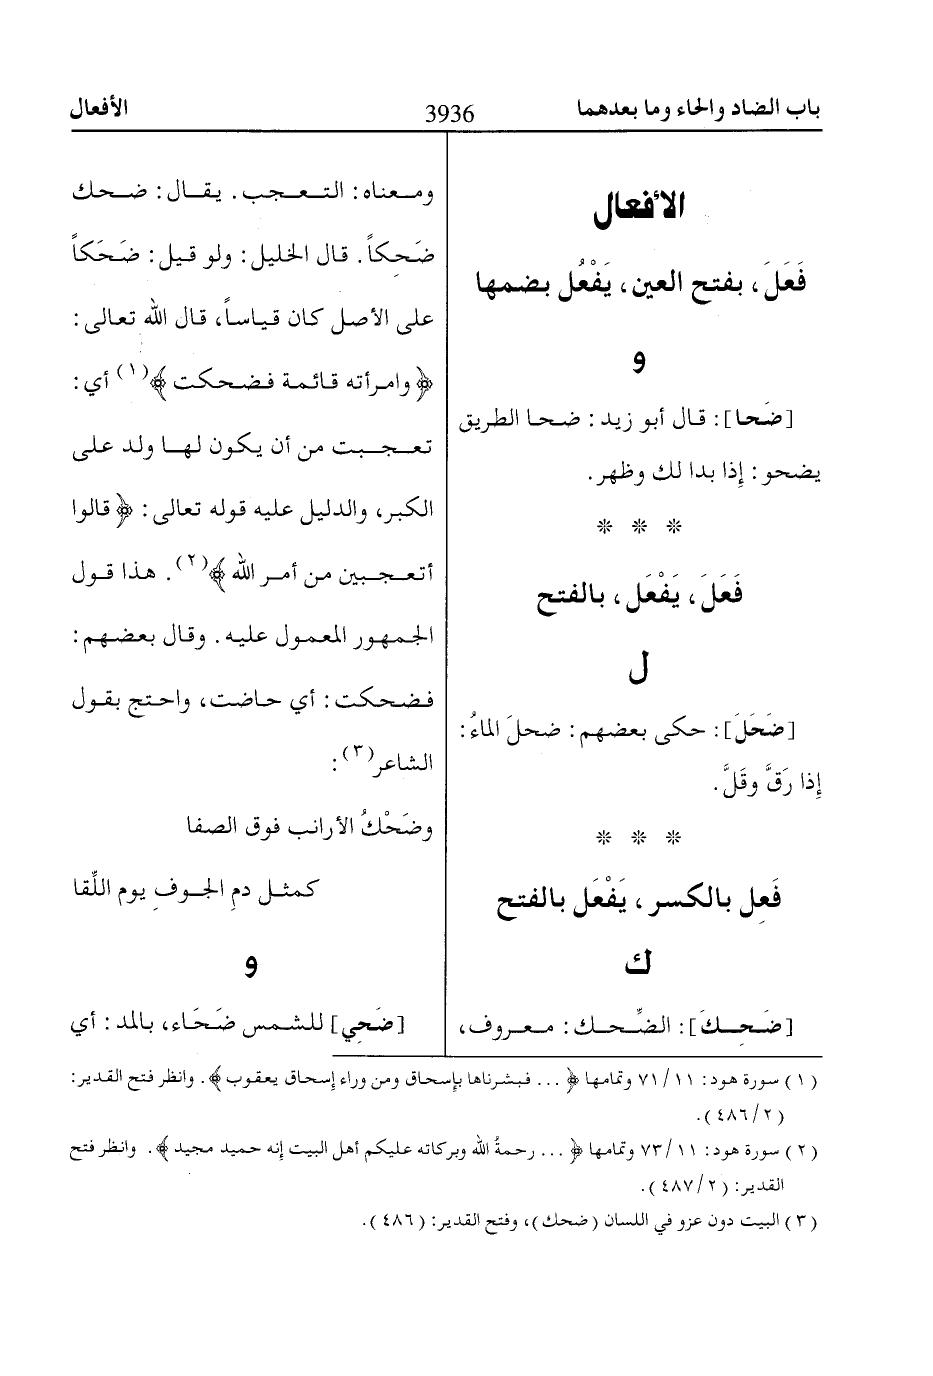 باب الضاد والحاء وما بعدهما
3936
الأفعال
الأفعال
فَعَلَ، بفتح العين، يَفْعُل بضمها
و
[ضَحا]: قال أبو زيد: ضحا الطريق
يضحو: إذا بدا لك وظهر.
* * *
فَعَلَ، يَفْعَل، بالفتح
ل
[ضَحَلَ]: حكى بعضهم: ضحلَ الماءُ:
إذا رَقَّ وقَلَّ.
* * *
فَعِل بالكسر، يَفْعَل بالفتح
ك
[ضَحِكَ]: الضِّحك: معروف،
ومعناه: التعجب. يقال: ضحك
ضَحِكاً. قال الخليل: ولو قيل: ضَحَكاً
على الأصل كان قياساً، قال الله تعالى:
﴿وامرأته قائمة فضحكت﴾(١) أي:
تعجبت من أن يكون لها ولد على
الكبر، والدليل عليه قوله تعالى: ﴿قالوا
أتعجبين من أمر الله﴾(٢). هذا قول
الجمهور المعمول عليه. وقال بعضهم:
فضحكت: أي حاضت، واحتج بقول
الشاعر(٣):
وضَحْكُ الأرانب فوق الصفا
كمثل دمِ الجوفِ يوم اللِّقا
و
[ضَحِي] للشمس ضَحَاء، بالمد: أي
(١) سورة هود: ٧١/١١ وتمامها ﴿... فبشرناها بإسحاق ومن وراء إسحاق يعقوب﴾. وانظر فتح القدير:
(٤٨٦/٢).
(٢) سورة هود: ٧٣/١١ وتمامها ﴿... رحمةُ الله وبركاته عليكم أهل البيت إنه حميد مجيد﴾. وانظر فتح
القدير: (٤٨٧/٢).
(٣) البيت دون عزو في اللسان (ضحك)، وفتح القدير: (٤٨٦).